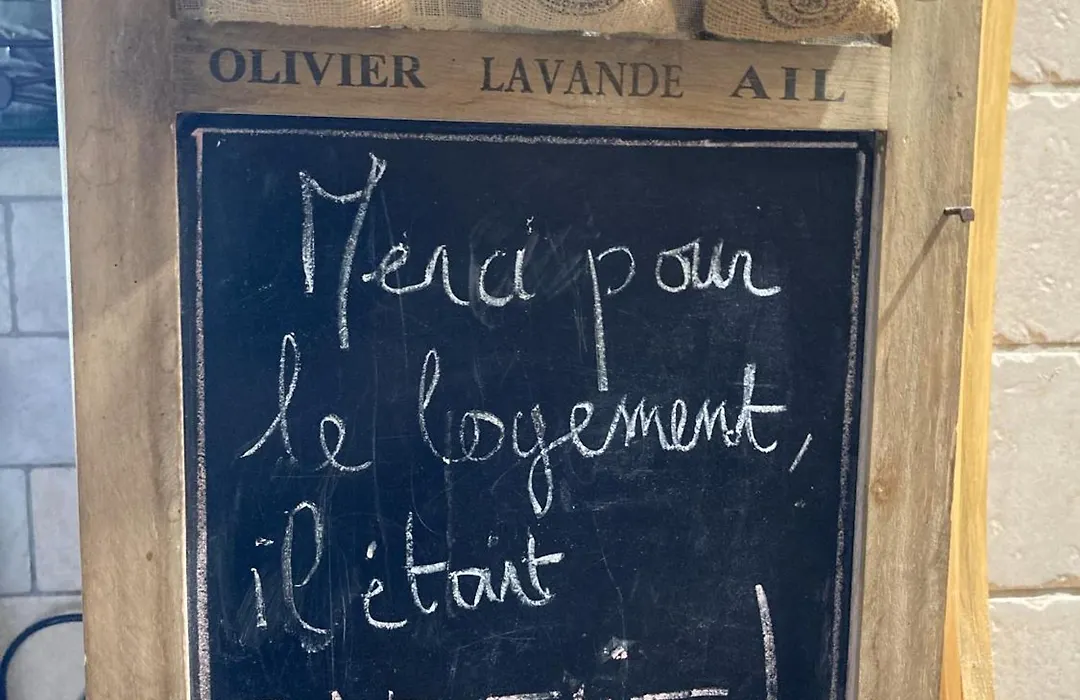 OLIVIER LAVANDE AIL
Merci pour
le logement,
il était